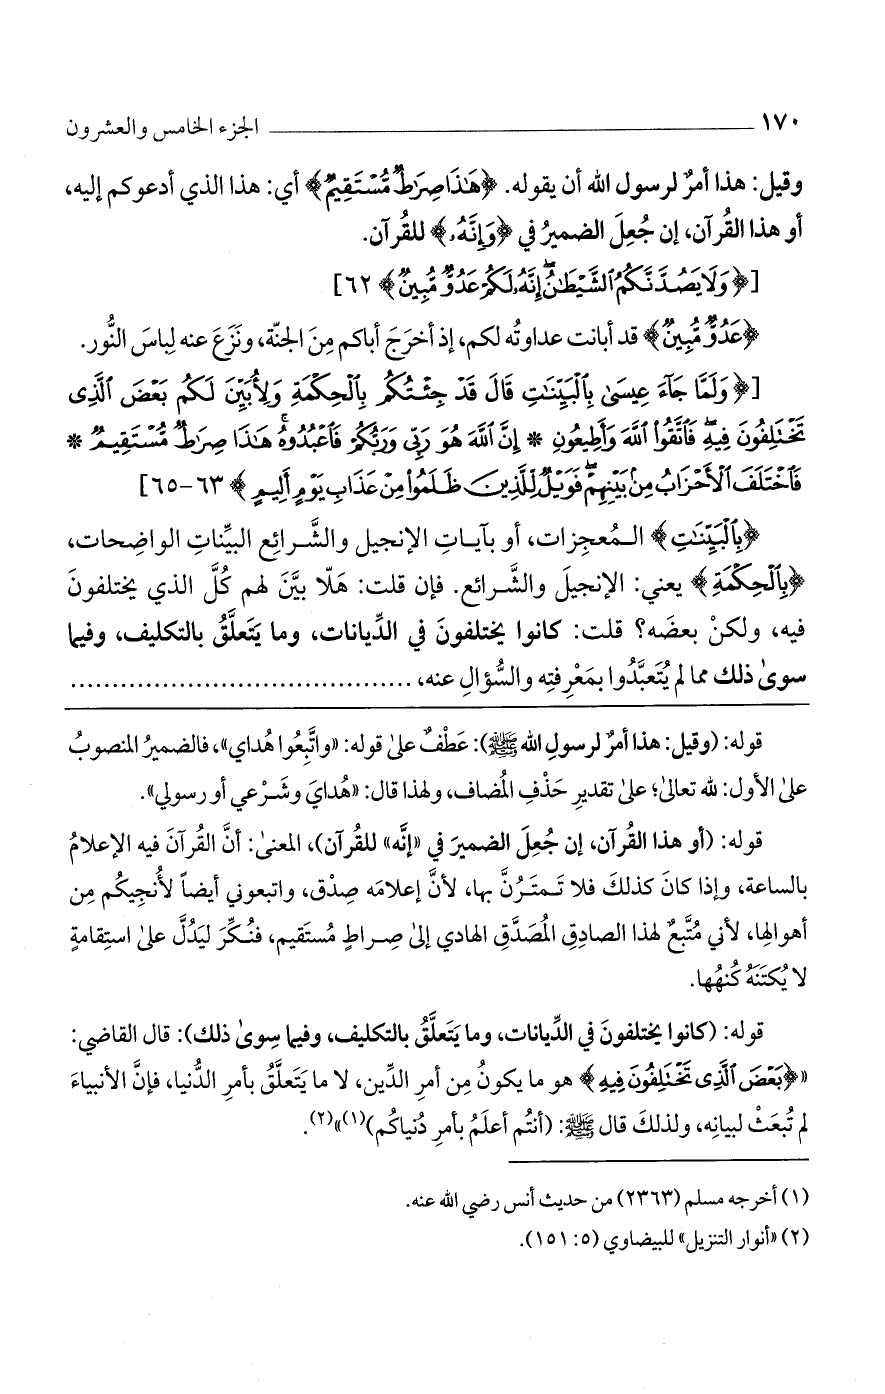 ١٧٠ الجزء الخامس والعشرون
وقيل: هذا أمرٌ لرسول الله أن يقوله. ﴿هَٰذَا صِرَٰطٌ مُّسْتَقِيمٌ﴾ أي: هذا الذي أدعوكم إليه،
أو هذا القُرآن، إن جُعِلَ الضميرُ في ﴿وَإِنَّهُۥ﴾ للقُرآن.
[﴿وَلَا يَصُدَّنَّكُمُ ٱلشَّيْطَٰنُ ۖ إِنَّهُۥ لَكُمْ عَدُوٌّ مُّبِينٌ﴾ ٦٢]
﴿عَدُوٌّ مُّبِينٌ﴾ قد أبانت عداوتُه لكم، إذ أخرَجَ أباكم مِنَ الجنّة، ونزَعَ عنه لِباسَ النُّور.
[﴿وَلَمَّا جَآءَ عِيسَىٰ بِٱلْبَيِّنَٰتِ قَالَ قَدْ جِئْتُكُم بِٱلْحِكْمَةِ وَلِأُبَيِّنَ لَكُم بَعْضَ ٱلَّذِى
تَخْتَلِفُونَ فِيهِ ۖ فَٱتَّقُوا۟ ٱللَّهَ وَأَطِيعُونِ * إِنَّ ٱللَّهَ هُوَ رَبِّى وَرَبُّكُمْ فَٱعْبُدُوهُ ۚ هَٰذَا صِرَٰطٌ مُّسْتَقِيمٌ *
فَٱخْتَلَفَ ٱلْأَحْزَابُ مِنۢ بَيْنِهِمْ ۖ فَوَيْلٌ لِّلَّذِينَ ظَلَمُوا۟ مِنْ عَذَابِ يَوْمٍ أَلِيمٍ﴾ ٦٣-٦٥]
﴿بِٱلْبَيِّنَٰتِ﴾ الـمُعجِزات، أو بآيـاتِ الإنجيل والشَّـرائعِ البيِّناتِ الواضِحات،
﴿بِٱلْحِكْمَةِ﴾ يعني: الإنجيلَ والشَّـرائع. فإن قلت: هَلّا بيَّنَ لهم كُلَّ الذي يختلفونَ
فيه، ولكنْ بعضَه؟ قلت: كانوا يختلفونَ في الدِّيانات، وما يَتَعلَّقُ بالتكليف، وفيما
سوىٰ ذلك مما لم يُتَعبَّدُوا بمَعْرِفتِه والسُّؤالِ عنه، .......................................
قوله: (وقيل: هذا أمرٌ لرسولِ الله ﷺ): عَطْفٌ علىٰ قوله: «واتَّبِعُوا هُداي»، فالضميرُ المنصوبُ
علىٰ الأول: لله تعالىٰ؛ علىٰ تقديرِ حَذْفِ المُضاف، ولهذا قال: «هُدايَ وشَرْعي أو رسولي».
قوله: (أو هذا القُرآن، إن جُعِلَ الضميرَ في «إنَّه» للقُرآن)، المعنىٰ: أنَّ القُرآنَ فيه الإعلامُ
بالساعة، وإذا كانَ كذلكَ فلا تَـمتَـرُنَّ بها، لأنَّ إعلامَه صِدْق، واتبعوني أيضاً لأُنجيكُم مِن
أهوالِها، لأني مُتَّبعٌ لهذا الصادِقِ المُصَدَّقِ الهادي إلىٰ صِـراطٍ مُستَقيم، فنُكِّرَ ليَدُلَّ علىٰ استِقامةٍ
لا يُكتَنَهُ كُنهُها.
قوله: (كانوا يختلفونَ في الدِّيانات، وما يَتَعلَّقُ بالتكليف، وفيما سِوىٰ ذلك): قال القاضي:
«﴿بَعْضَ ٱلَّذِى تَخْتَلِفُونَ فِيهِ﴾ هو ما يكونُ مِن أمرِ الدِّين، لا ما يَتَعلَّقُ بأمرِ الدُّنيا، فإنَّ الأنبياءَ
لم تُبعَثْ لبيانِه، ولذلكَ قال ﷺ: (أنتُم أعلَمُ بأمرِ دُنياكُم)(١)»(٢).
(١) أخرجه مسلم (٢٣٦٣) من حديث أنس رضي الله عنه.
(٢) «أنوار التنزيل» للبيضاوي (٥: ١٥١).